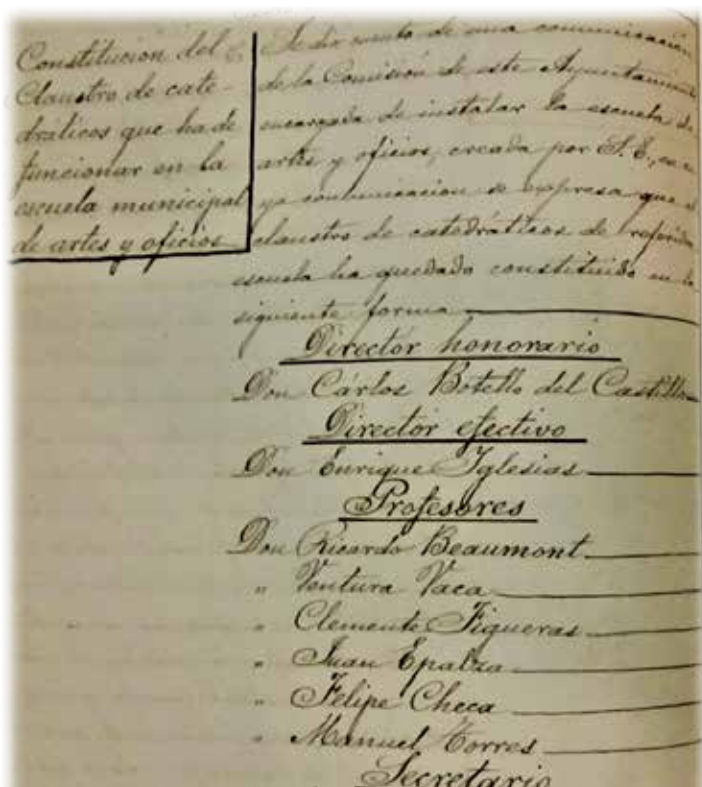 Constitucion del
Claustro de cate-
dráticos que ha de
funcionar en la
escuela municipal
de artes y oficios
Se dió cuenta de una comunicación
de la Comisión de este Ayuntamiento
encargada de instalar la escuela de
artes y oficios, creada por S. E., en cu
ya comunicacion se expresa que el
claustro de catedráticos de referida
escuela ha quedado constituido en la
siguiente forma
Director honorario
Don Cárlos Botello del Castillo
Director efectivo
Don Enrique Iglesias
Profesores
Don Ricardo Beaumont
" Ventura Vaca
" Clemente Figueras
" Juan Epalza
" Felipe Checa
" Manuel Torres
Secretario